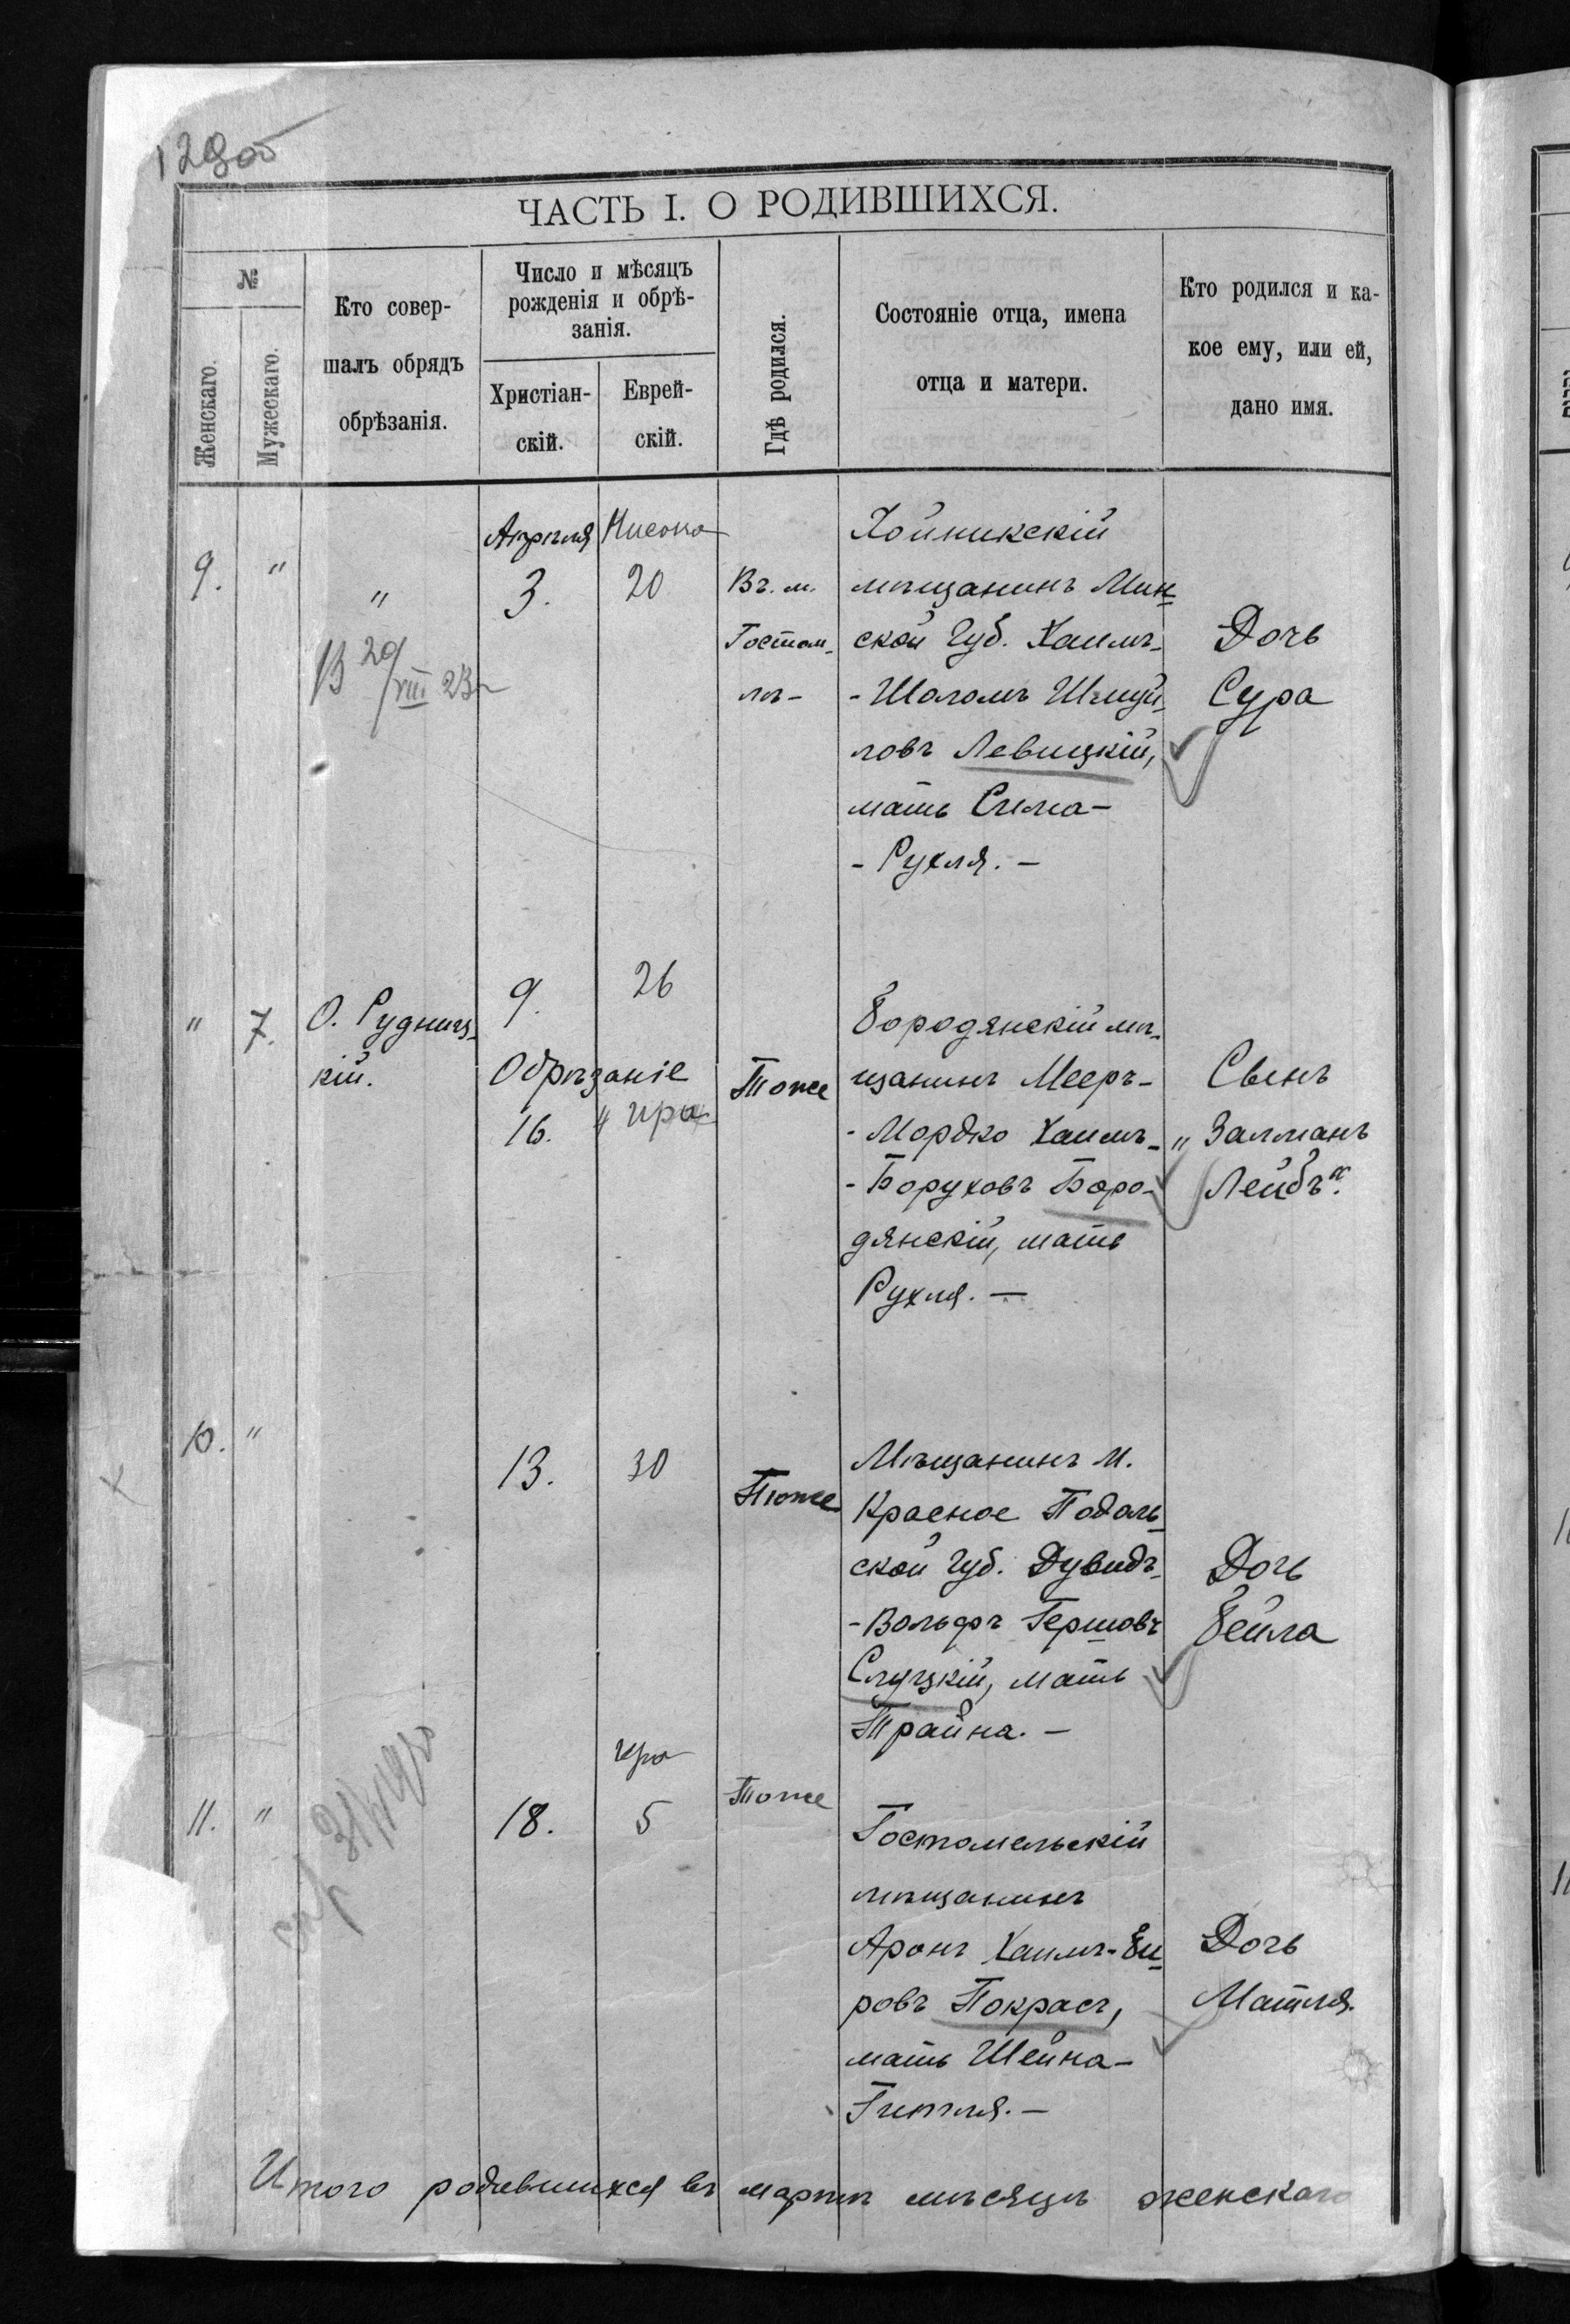 129об
ЧАСТЬ I. О РОДИВШИХСЯ.
№
Женскаго.
Мужескаго.
Кто совер-
шалъ обрядъ
обрѣзанія.
Число и мѣсяцъ
рожденія и обрѣ-
занія.
Христіан-
скій.
Еврей-
скій.
Гдѣ родился.
Состояніе отца, имена
отца и матери.
Кто родился и ка-
кое ему, или ей,
дано имя.
9.
"
"
В 29/VIII 23
Апрѣля
3.
Нисона
20
Въ м.
Гостом-
лѣ-
Хойникскій
мѣщанинъ Мин-
ской Губ. Хаимъ-
-Шоломъ Шмуй-
ловъ Левицкій,
мать Сима-
-Рухля. —
Дочь
Сура
"
7.
О. Рудниц-
кій.
9.
26
Обрѣзаніе
16.
" Ира
Тоже
Бородянскій мѣ-
щанинъ Мееръ-
-Мордко Хаимъ-
-Боруховъ Боро-
дянскій, мать
Рухля. —
Сынъ
„ Залманъ
Лейбъ“.
10.
"
13.
30
Тоже
Мѣщанинъ М.
Красное Подоль-
ской Губ. Дувидъ-
-Вольфъ Гершовъ
Слуцкій, мать
Трайна. —
Дочь
Бейла
11.
"
31/V 1930
18.
Ира
5
Тоже
Гостомельскій
мѣщанинъ
Аронъ Хаимъ-Бе-
ровъ Покрасъ,
мать Шейна-
Гитля. —
Дочь
Матля.
Итого родившихся въ мартѣ мѣсяцѣ женскаго